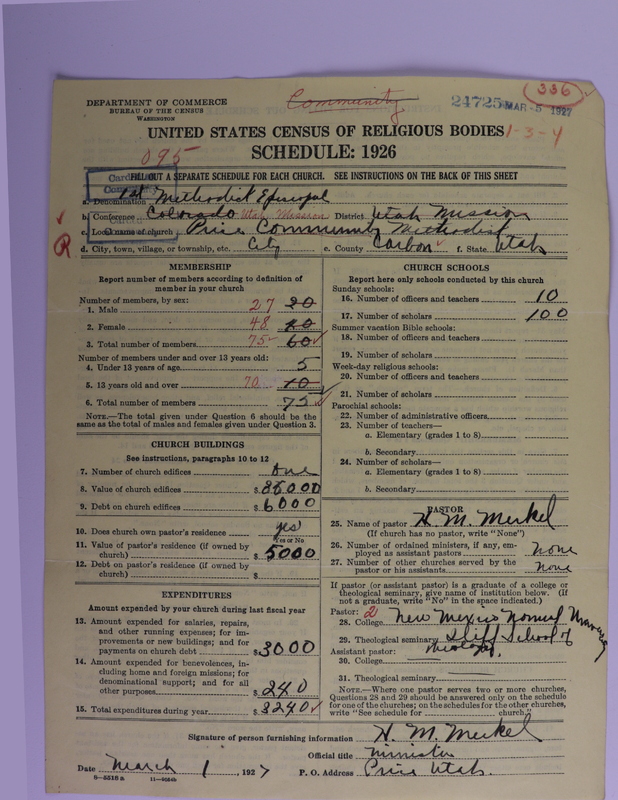 DEPARTMENT OF COMMERCE
BUREAU OF THE CENSUS
WASHINGTON
Community
24725
MAR -5 1927
336
UNITED STATES CENSUS OF RELIGIOUS BODIES
1-3-4
SCHEDULE: 1926
095
FILL OUT A SEPARATE SCHEDULE FOR EACH CHURCH. SEE INSTRUCTIONS ON THE BACK OF THIS SHEET
a. Denomination 1st Methodist Episcopal
b. Conference Colorado Utah Mission District Utah Mission
c. Local name of church Price Community Methodist
R
d. City, town, village, or township, etc. City e. County Carbon f. State Utah
MEMBERSHIP
Report number of members according to definition of member in your church
Number of members, by sex:
1. Male 27 20
2. Female 48 40
3. Total number of members 75 60
Number of members under and over 13 years old:
4. Under 13 years of age 5
5. 13 years old and over 70 70
6. Total number of members 75
NOTE.—The total given under Question 6 should be the same as the total of males and females given under Question 3.
CHURCH BUILDINGS
See instructions, paragraphs 10 to 12
7. Number of church edifices One
8. Value of church edifices $
9. Debt on church edifices $ 6000
10. Does church own pastor's residence yes
Yes or No
11. Value of pastor's residence (if owned by church) $ 5000
12. Debt on pastor's residence (if owned by church) $
EXPENDITURES
Amount expended by your church during last fiscal year
13. Amount expended for salaries, repairs, and other running expenses; for improvements or new building; and for payments on church debt $ 3000
14. Amount expended for benevolences, including home and foreign missions; for denominational support; and for all other purposes $ 240
15. Total expenditures during year $ 3240
CHURCH SCHOOLS
Report here only schools conducted by this church
Sunday schools:
16. Number of officers and teachers 10
17. Number of scholars 100
Summer vacation Bible schools:
18. Number of officers and teachers
19. Number of scholars
Week-day religious schools:
20. Number of officers and teachers
21. Number of scholars
Parochial schools:
22. Number of administrative officers
23. Number of teachers—
a. Elementary (grades 1 to 8)
b. Secondary
24. Number of scholars—
a. Elementary (grades 1 to 8)
b. Secondary
PASTOR
25. Name of pastor H. M. Merkel
(If church has no pastor, write "None")
26. Number of ordained ministers, if any, employed as assistant pastors none
27. Number of other churches served by the pastor or his assistants none
If pastor (or assistant pastor) is a graduate of a college or theological seminary, give name of institution below. (If not a graduate, write "No" in the space indicated.)
Pastor: 2
28. College New Mexico Normal University
29. Theological seminary Iliff School of Theology.
Assistant pastor:
30. College
31. Theological seminary
NOTE.—Where one pastor serves two or more churches, Questions 28 and 29 should be answered only on the schedule for one of the churches; on the schedules for the other churches, write "See schedule for church."
Signature of person furnishing information H. M. Merkel
Official title minister
Date March 1, 1927 P. O. Address Price Utah.